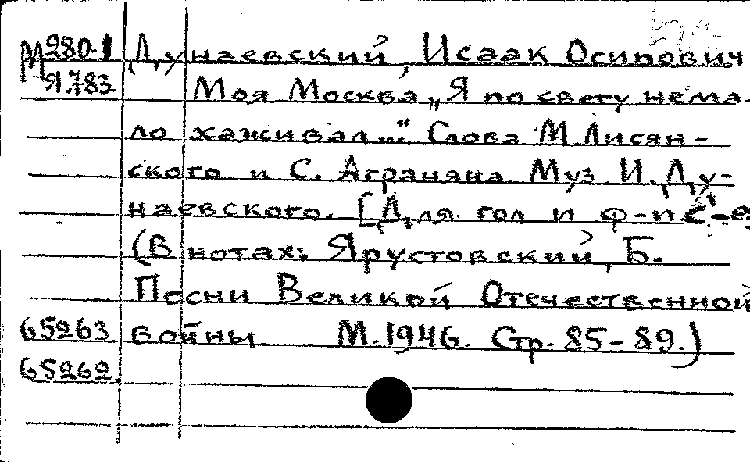 М280-1 Дунаевский, Исаак Осипович
Я783 Моя Москва „Я по свету нема-
ло хаживал..." Слова М Лисян-
ского и С. Аграняна Муз И. Ду-
наевского. [Для гол и ф-п
(В нотах: Ярустовский, Б.
Песни Великой Отечественной
65263 войны М. 1946. Стр. 85-89.)
65262